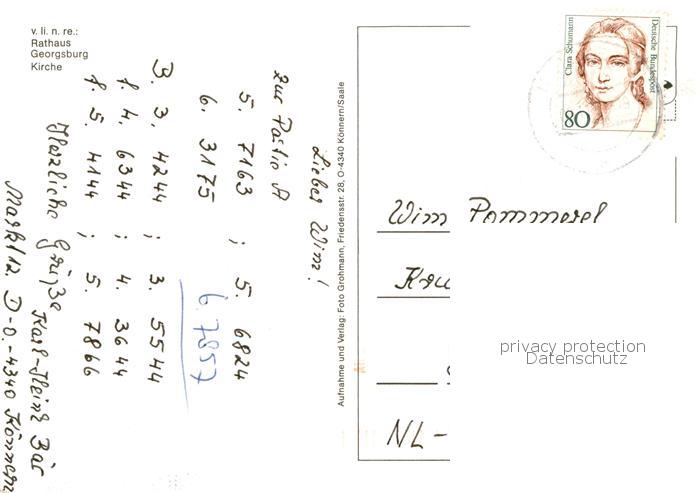 v. li. n. re.:
Rathaus
Georgsburg
Kirche
Lieber Wim!
zur Partie A
5. 7163 ; 5. 6824
6. 3175 6. 7857
3. 3, 4244 ; 3. 5544
f. 4. 6344 ; 4. 3644
f. 5. 4144 ; 5. 7866
Herzliche Grüße
Karl-Heinz Bär
Markt 12. D-O.-4340 Könnern
Aufnahme und Verlag: Foto Grohmann, Friedensstr. 28, O-4340 Könnern/Saale
Clara Schumann
Deutsche Bundespost
80
Wim Pommerel
NL-
privacy protection
Datenschutz